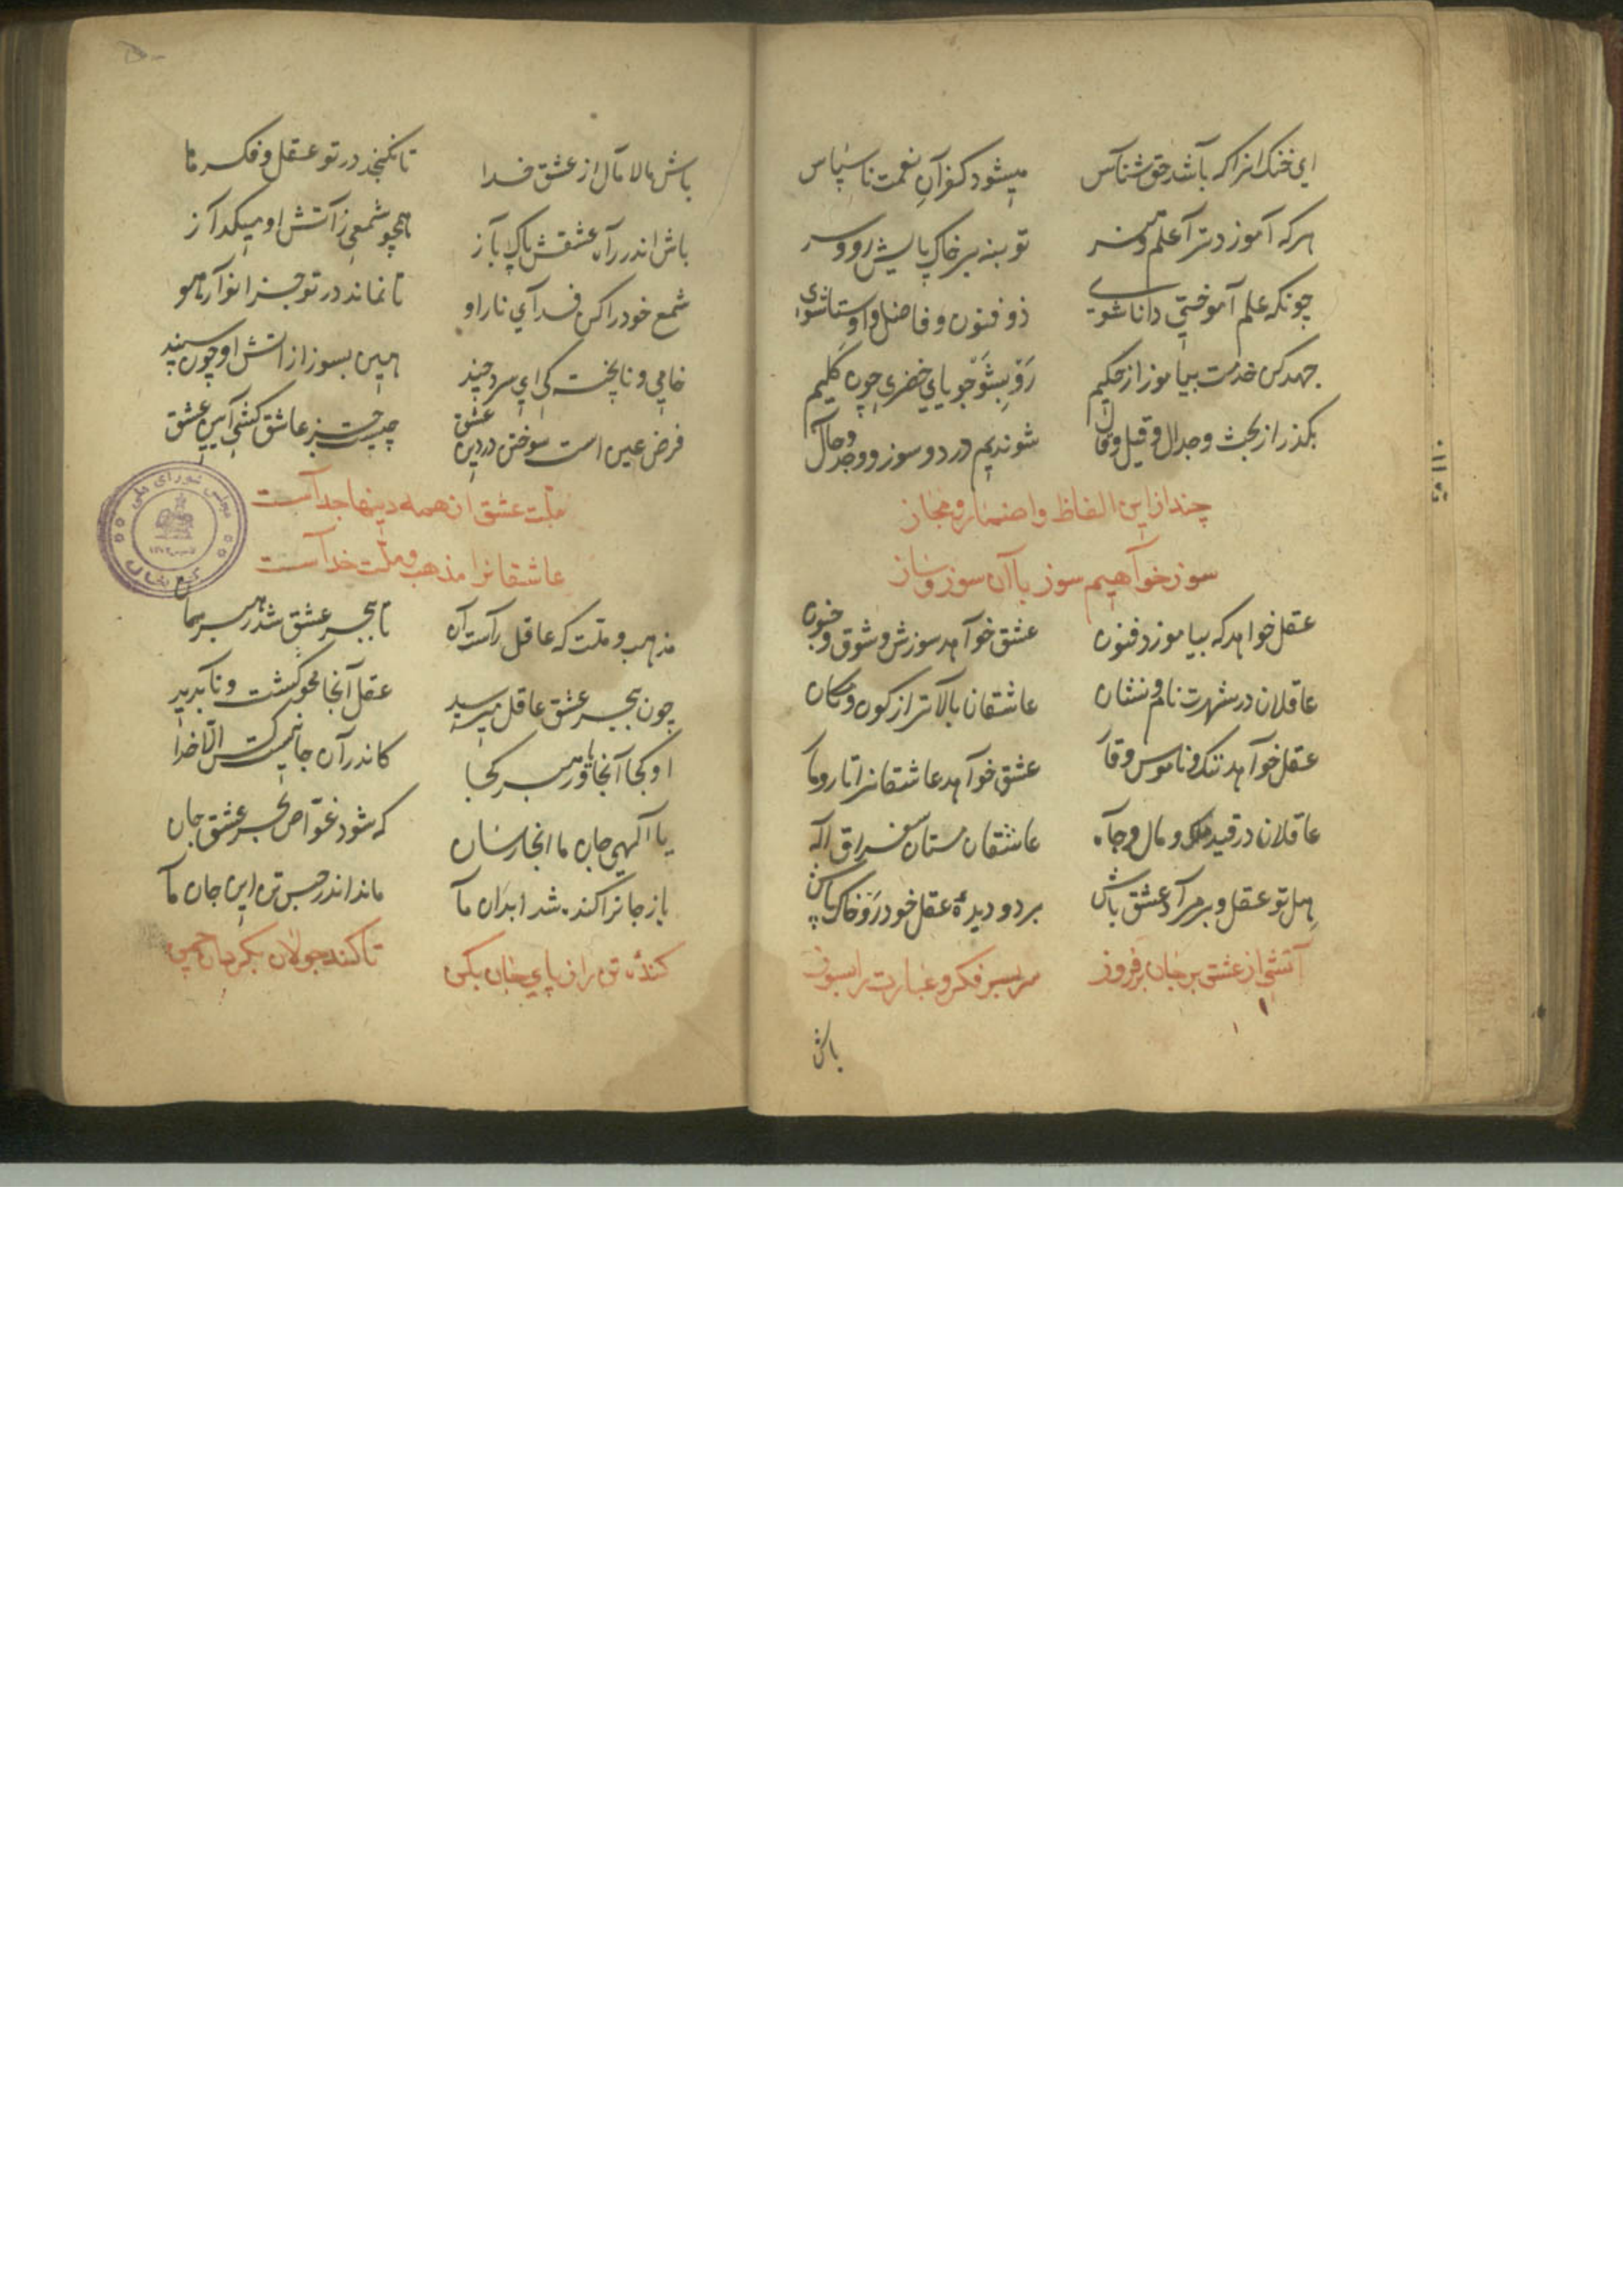 ای خنک انرا که باشد حق شناس میشود کفران نعمت ناسپاس
هرکه آموزد ترا علم و هنر تو بنه بر خاک پایش رو و سر
چونکه علم آموختی دانا شوی ذو فنون و فاضل و اوستا شوی
جهد کن خدمت بیاموز از حکیم رو بشو جویای خضری چون کلیم
بکذر از بحث و جدال و قیل و قال شو ندیم درد و سوز و وجد و حال
چند ازین الفاظ و اضمار و مجاز
سوز خواهیم سوز با آن سوز و ساز
عقل خواهد که بیاموزد فنون عشق خواهد سوزش و شوق و جنون
عاقلان در شهرت نام و نشان عاشقان بالاتر از کون و مکان
عقل خواهد ننک و ناموس و قا عشق خواهد عاشقانرا تار و مار
عاقلان در قید ملک و مال و جاه عاشقان مستان فراق اله
هل تو عقل و بر مراد عشق باش بر دو دیدۀ عقل خود رو خاک پاش
آتشی از عشق بر جان برفروز سر بسر فکر و عبارت را بسوز
باش
۵۰
باش مالا مال از عشق خدا تا نکنجد در تو عقل و فکر ها
باش اندر راه عشقش پاک باز همچو شمعی زآتش او میکداز
شمع خود را کن فدای نار او تا نماند در تو جز انوار هو
خامی و ناپخته کی ای سرد چند هین بسوز از اتش او چون سپند
فرض عین است سوختن در دین عشق چیست جز عاشق کشی آیین عشق
ملت عشق از همه دینها جداست
عاشقانرا مذهب و ملت خداست
مذهب و ملت که عاقل راست آن تا ببحر عشق شد رهبر بما
چون ببحر عشق عاقل میرسید عقل آنجا محو کشت و ناپدید
او کجا آنجا و رهبر کجا کاندر آن جا نیست کس الّا خدا
یا الهی جان ما انجا رسان که شود غوّاص بحر عشق جان
باز جانرا کنده شد ابدان ما ماند اندر حبس تن این جان ما
کندۀ تن را ز پای جان بکن تا کند جولان بکرد ان چمن
مجلس شورای ملی